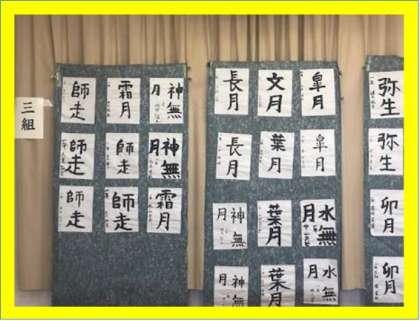 三組
師走
霜月
神無月
師走
師走
神無月
師走
師走
霜月
長月
文月
皐月
長月
葉月
皐月
神無月
葉月
水無月
神無月
葉月
水無月
弥生
弥生
卯月
卯月